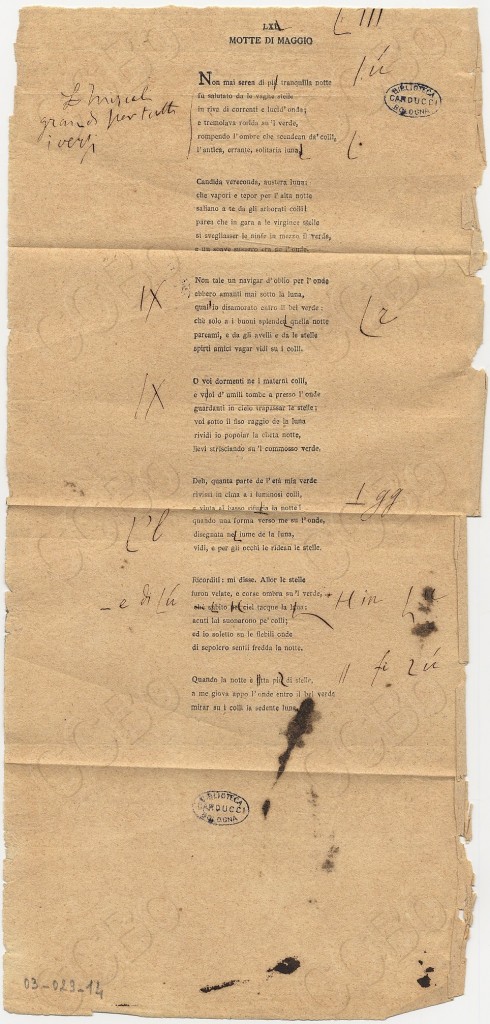 MOTTE DI MAGGIO
Non mai seren di più tranquilla notte
fu salutato da le vaghe stelle
in riva di correnti e lucid'onda;
e tremolava rorida su 'l verde,
rompendo l'ombre che scendean da' colli,
l'antica, errante, solitaria luna
grandi per tutti
i versi
BIBLIOTECA
CARDUCCI
BOLOGNA
Candida vereconda, austera luna:
che vapori e tepor per l'alta notte
saliano a te da gli arborati colli!
parea che in gara a le virginee stelle
si svegliasser le ninfe in mezzo il verde,
e un soave susurro era ne l'onde.
Non tale un navigar d'oblio per l'onde
ebbero amanti mai sotto la luna,
qual io disamorato entro il bel verde:
che solo a i buoni splender quella notte
pareami, e da gli avelli e da le stelle
spirti amici vagar vidi su i colli.
O voi dormenti ne i materni colli,
e voi d'umili tombe a presso l'onde
guardanti in cielo trapassar le stelle;
voi sotto il fiso raggio de la luna
rividi io popolar la cheta notte,
lievi strisciando su 'l commosso verde.
Deh, quanta parte de l'età mia verde
rivissi in cima a i luminosi colli,
e vinta al basso
la notte!
quando una forma verso me su l'onde,
disegnata nel lume de la luna,
vidi, e per gli occhi le ridean le stelle.
gg
Ricorditi: mi disse. Allor le stelle
furon velate, e corse ombra su 'l verde,
e di
ché subito nel ciel tacque la luna:
acuti lai suonarono pe' colli;
ed io soletto su le flebili onde
di sepolcro sentii fredda la notte.
Quando la notte è fitta più di stelle,
a me giova appo l'onde entro il bel verde
mirar su i colli la sedente luna.
BIBLIOTECA
CARDUCCI
BOLOGNA
03-023-14